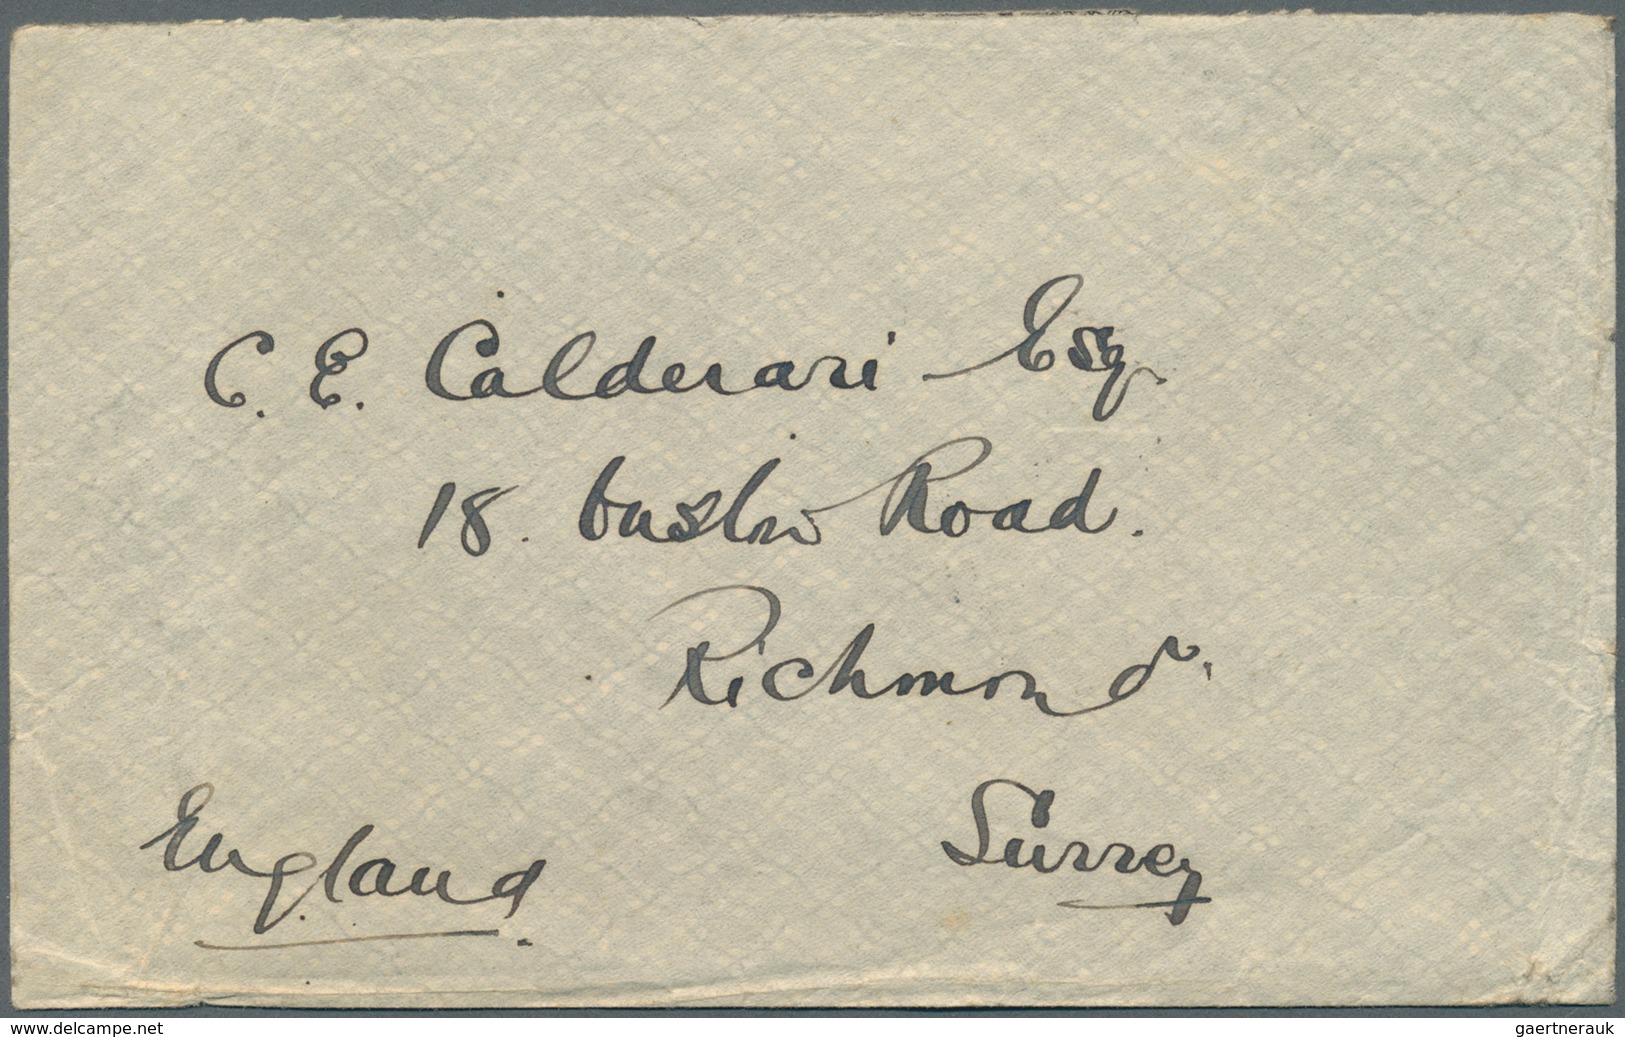 C. E. Calderari Esq.
18. Onslow Road.
Richmond.
Surrey
England.
www.delcampe.net
gaertnerauk